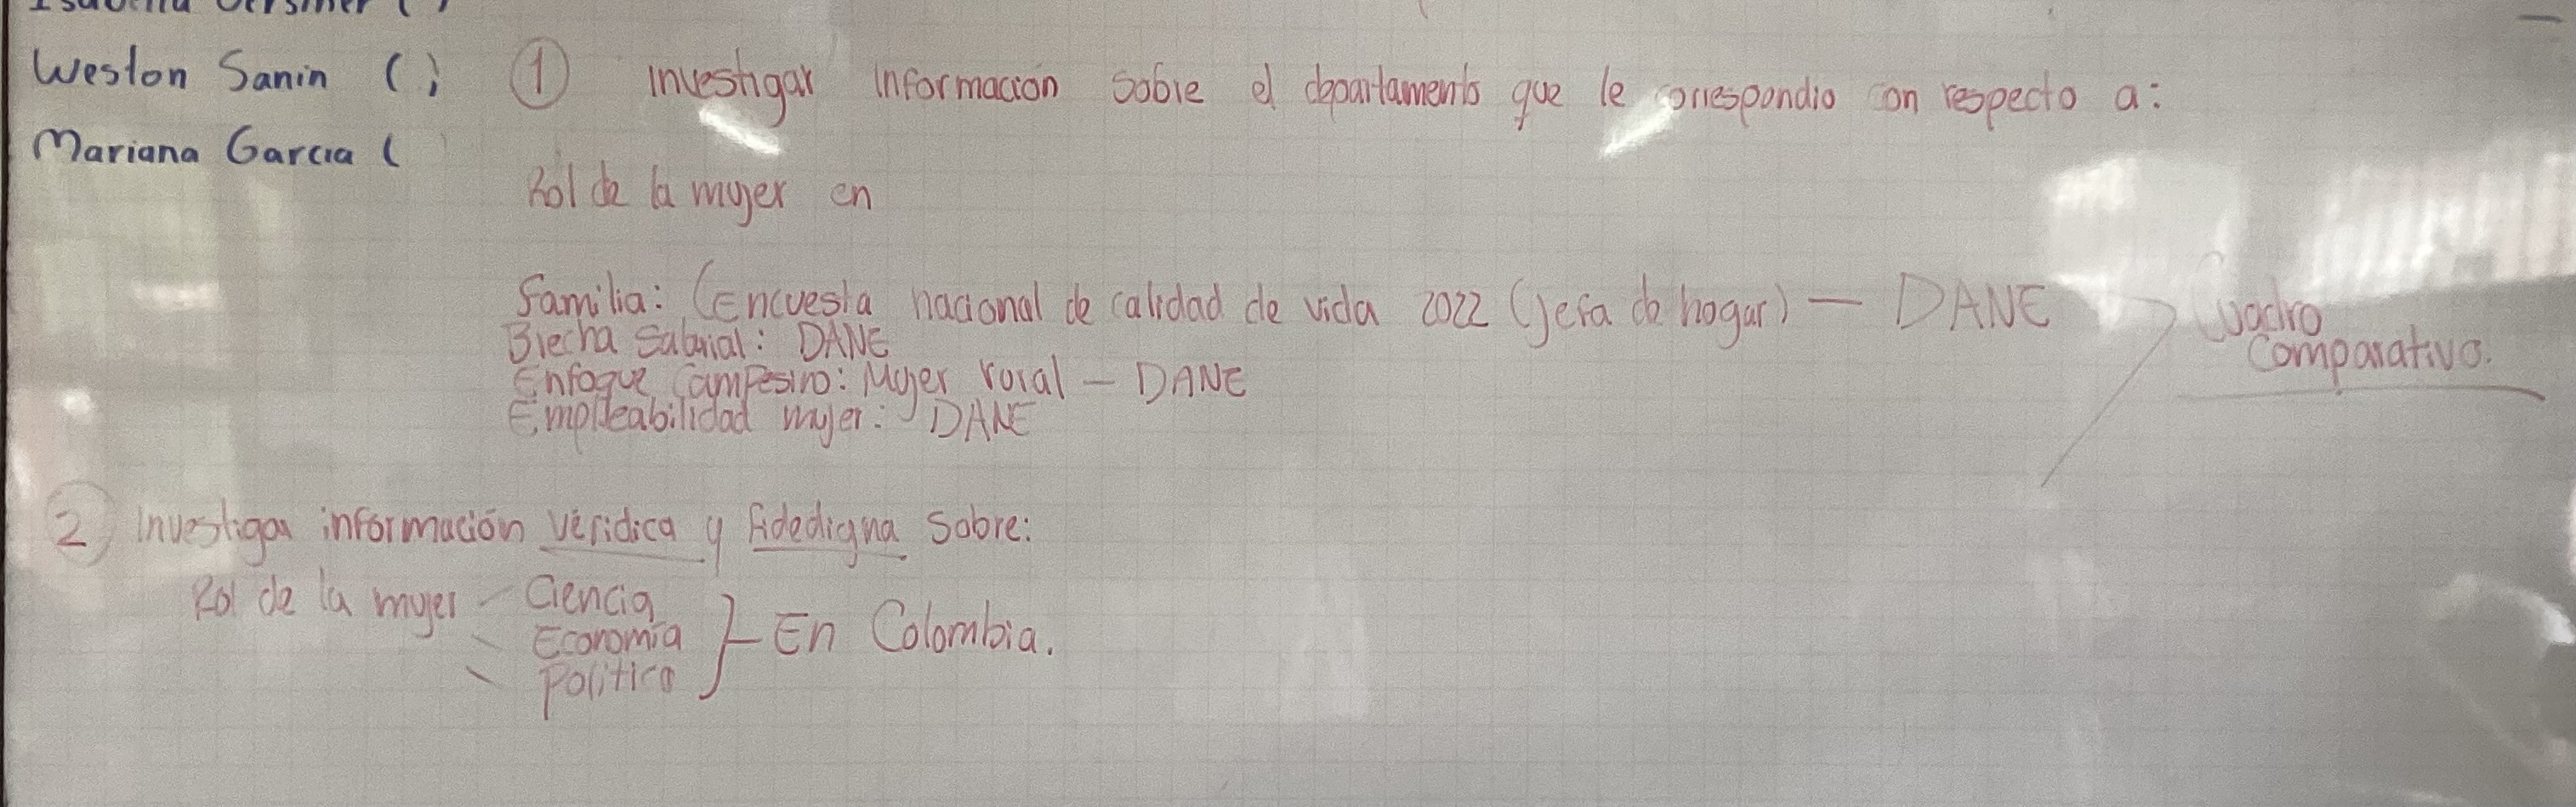 Weston Sanin ( )
Mariana Garcia (
① Investigar información sobre el departamento que le correspondio con respecto a:
Rol de la mujer en
Familia: (Encuesta nacional de calidad de vida 2022 (Jefa de hogar) — DANE
Brecha Salarial: DANE
Enfoque Campesino: Mujer rural — DANE
Empleabilidad mujer: DANE
Cuadro
Comparativo.
② Investigar información verídica y fidedigna sobre:
Rol de la mujer - Ciencia
Economía
Político
} En Colombia.